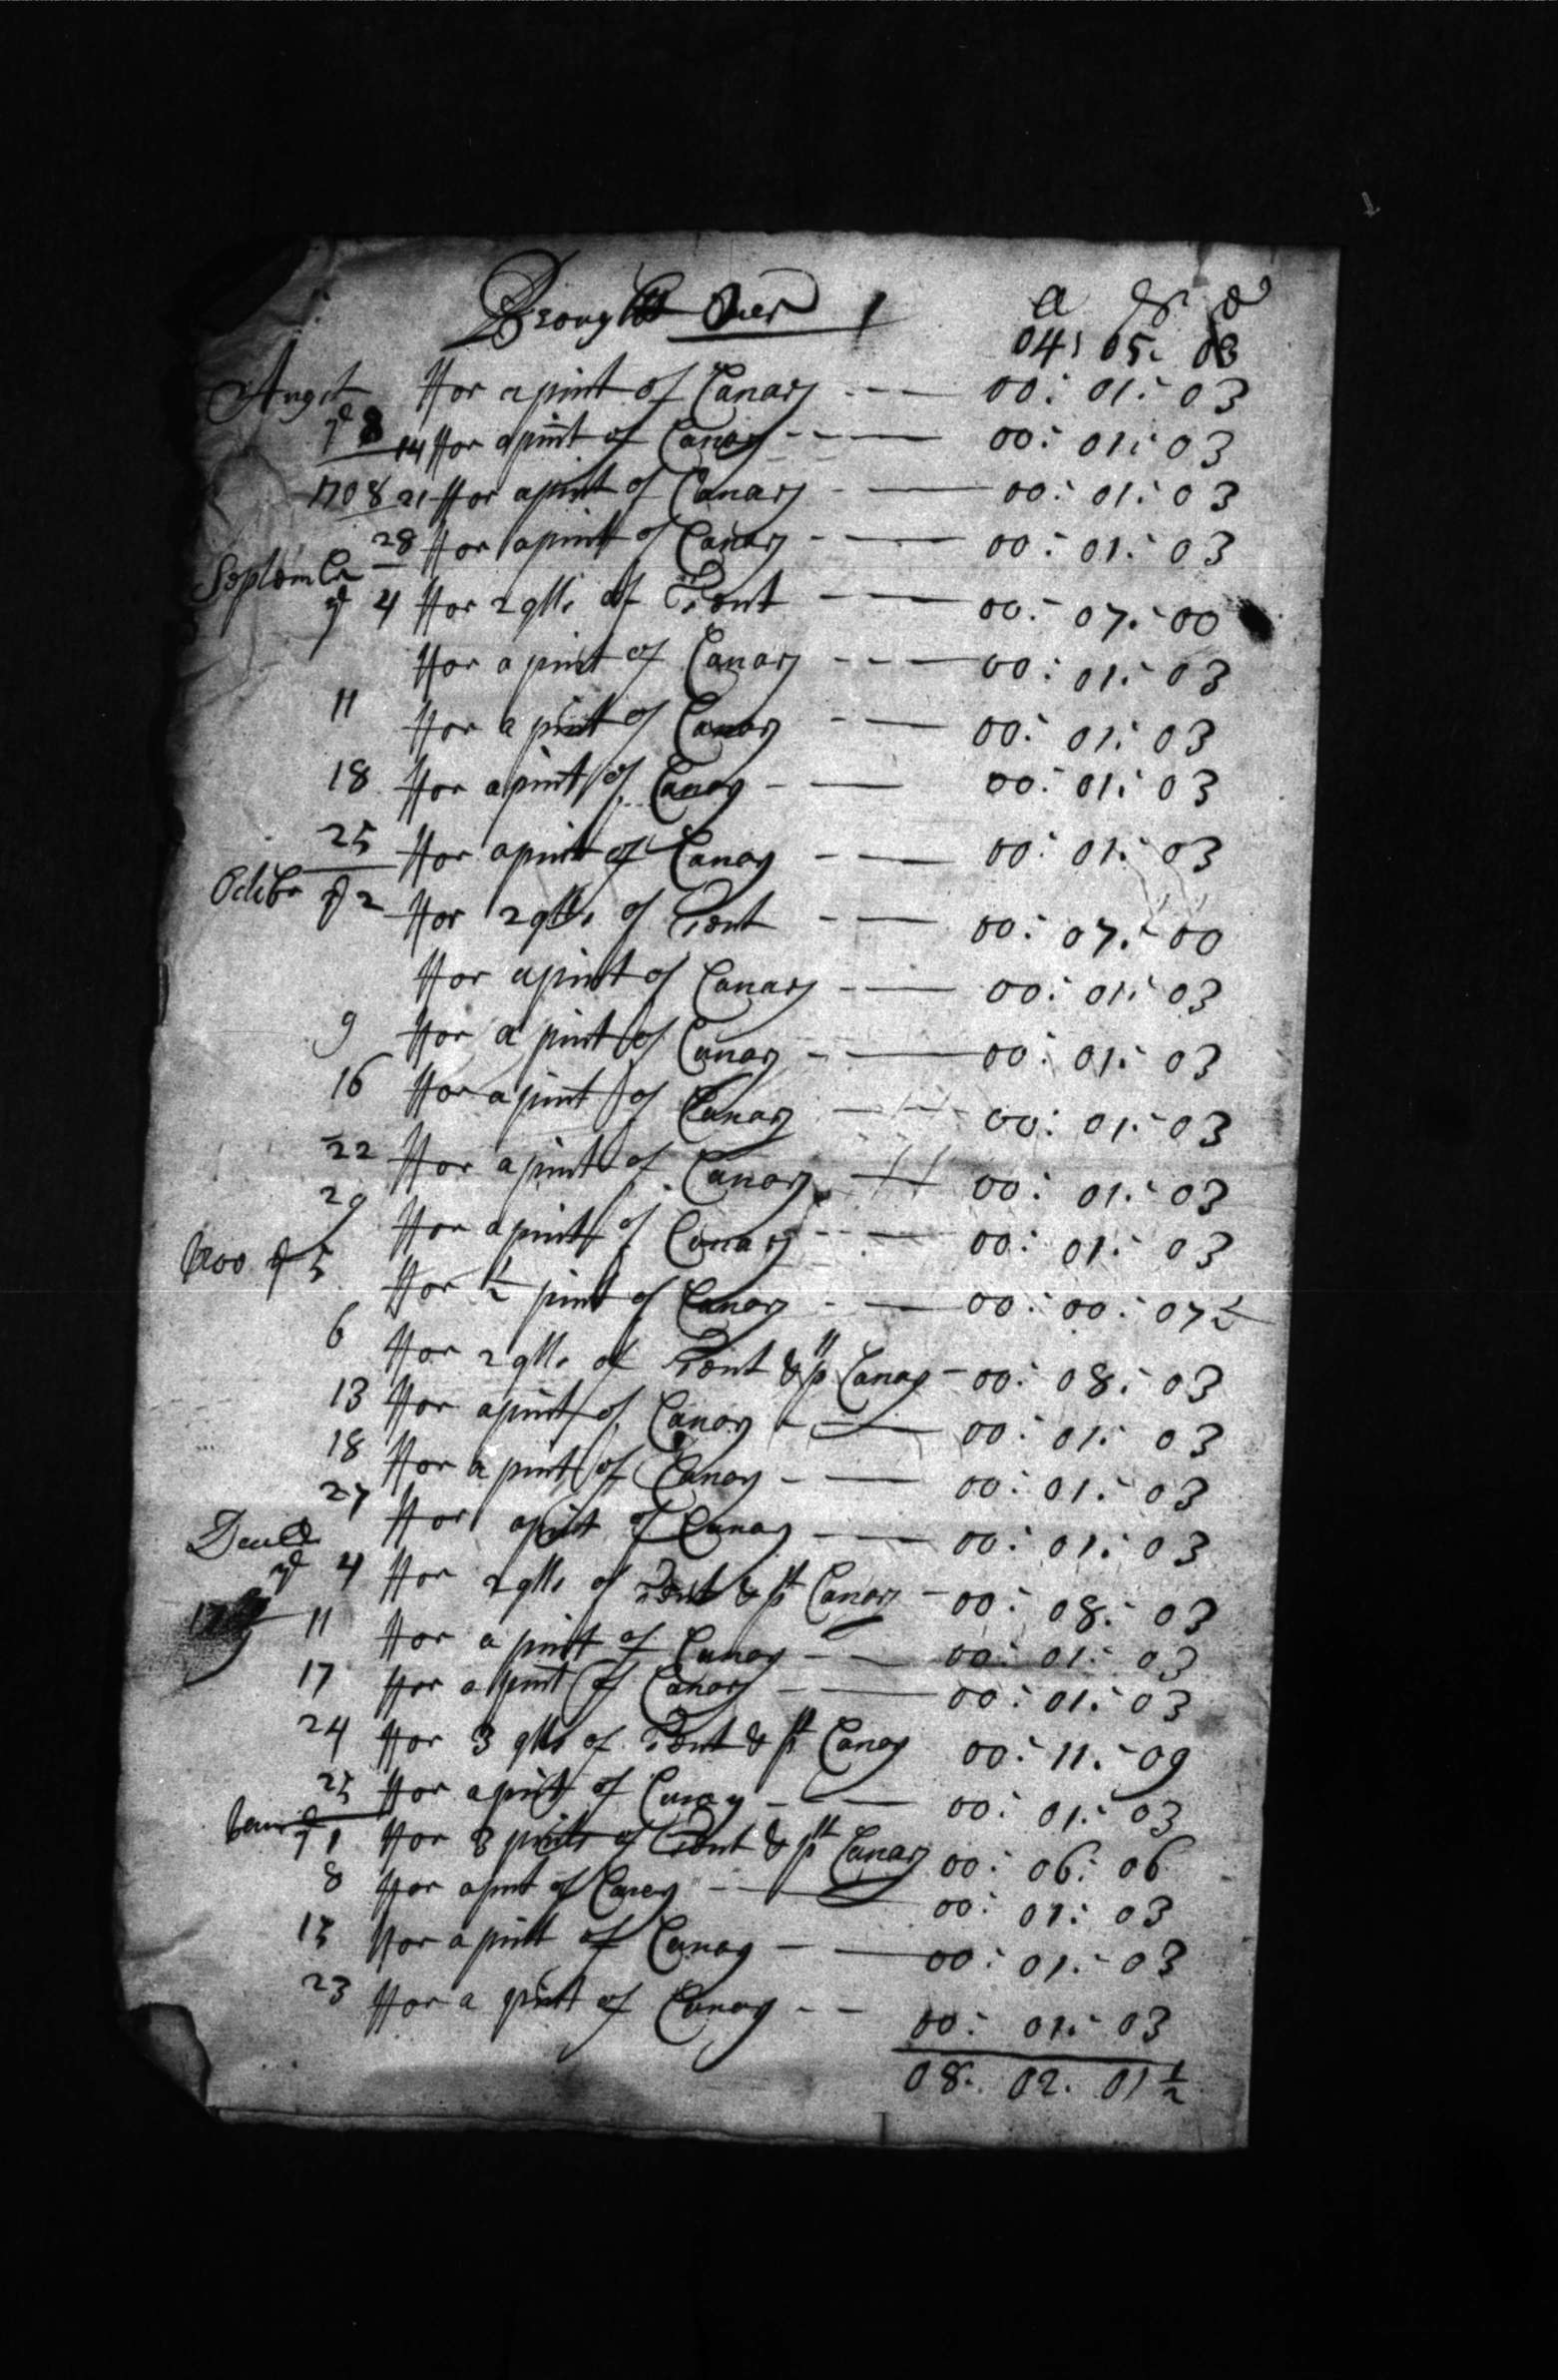 Brought Over l s d
04: 05: 03
Augst ffor a pint of Canary --- 00: 01: 03
ye 8
14 ffor a pint of Canary --- 00: 01: 03
1708 21 ffor a pint of Canary --- 00: 01: 03
28 ffor a pint of Canary --- 00: 01: 03
Septembr
ye 4 ffor 2 qtts of Tent --- 00: 07: 00
ffor a pint of Canary --- 00: 01: 03
11 ffor a pint of Canary --- 00: 01: 03
18 ffor a pint of Canary --- 00: 01: 03
25 ffor a pint of Canary --- 00: 01: 03
Octibr ye 2 ffor 2 qtts of Tent --- 00: 07: 00
ffor a pint of Canary --- 00: 01: 03
9 ffor a pint of Canary --- 00: 01: 03
16 ffor a pint of Canary --- 00: 01: 03
22 ffor a pint of Canary --- 00: 01: 03
29 ffor a pint of Canary --- 00: 01: 03
Nov ye 5 ffor ½ pint of Canary --- 00: 00: 07½
6 ffor 2 qtts of Tent & ptt Canary - 00: 08: 03
13 ffor a pint of Canary --- 00: 01: 03
18 ffor a pint of Canary --- 00: 01: 03
27 ffor a pint of Canary --- 00: 01: 03
Decembr
ye 4 ffor 2 qtts of Tent & ptt Canary - 00: 08: 03
11 ffor a pint of Canary --- 00: 01: 03
17 ffor a pint of Canary --- 00: 01: 03
24 ffor 3 qtts of Tent & ptt Canary 00: 11: 09
25 ffor a pint of Canary --- 00: 01: 03
ye 1 ffor 3 pints of Tent & ptt Canary 00: 06: 06
8 ffor a pint of Canary --- 00: 01: 03
15 ffor a pint of Canary --- 00: 01: 03
23 ffor a pint of Canary --- 00: 01: 03
08: 02: 01½